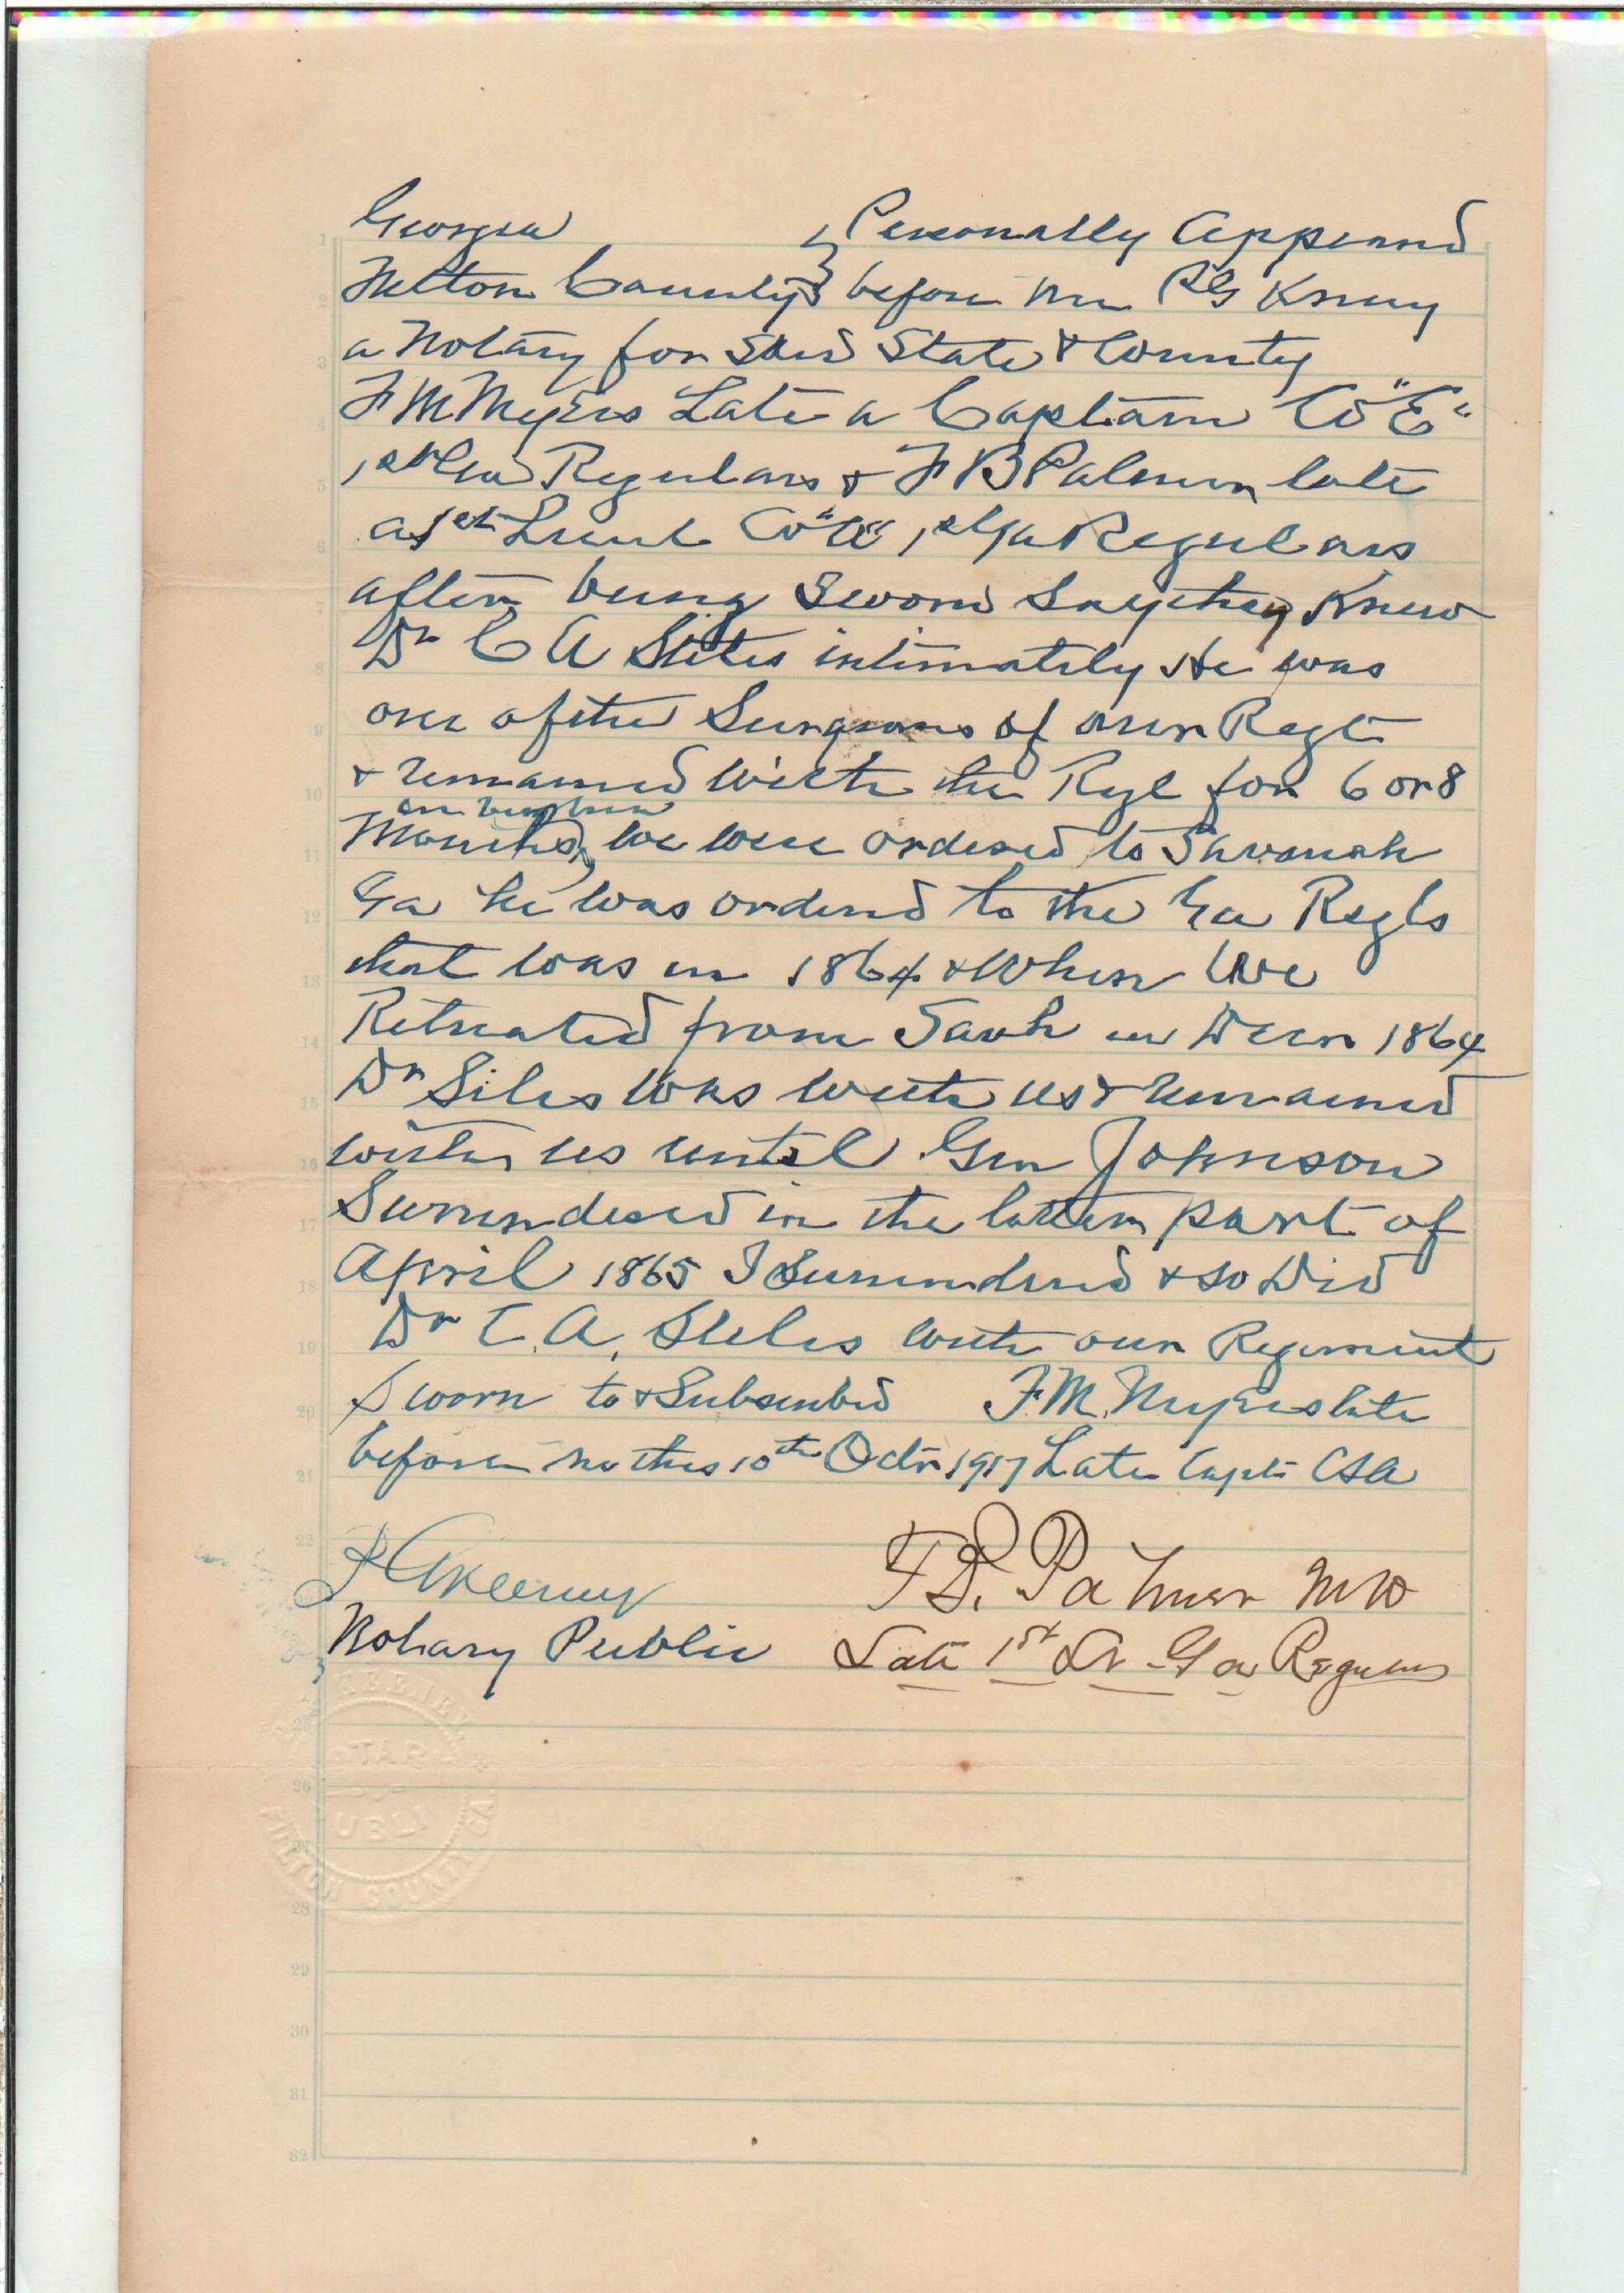 Georgia } Personally appeared
Fulton County } before me
a Notary for Said State & County
F M Myers Late a Captain Co "E"
1st Ga Regulars & F B Palmer late
a 1st Lieut Co 1st Ga Regulars
after being Sworn Say they Knew
Dr C A Stiles intimately He was
one of the Surgeons of our Regt
& remained with the Regt for 6 or 8
Months, we were ordered to Savanah
Ga he was ordered to the Ga Regls
that was in 1864 & When We
Retreated from Savh in Decr 1864
Dr Siles was with us & remained
with us until Gen Johnson
Surrendered in the latter part of
April 1865 I Surrendered & so Did
Dr C. A. Stiles with our Regiment
Sworn to & Subscribed F. M. Myers late
before me this 10th Octr 1917 Late Capt CSA
Notary Public
Late 1st Lt Ga Regulars
NOTARY PUBLIC
FULTON COUNTY, GA.
1
2
3
4
5
6
7
8
9
10
11
12
13
14
15
16
17
18
19
20
21
22
25
26
27
28
29
30
31
32